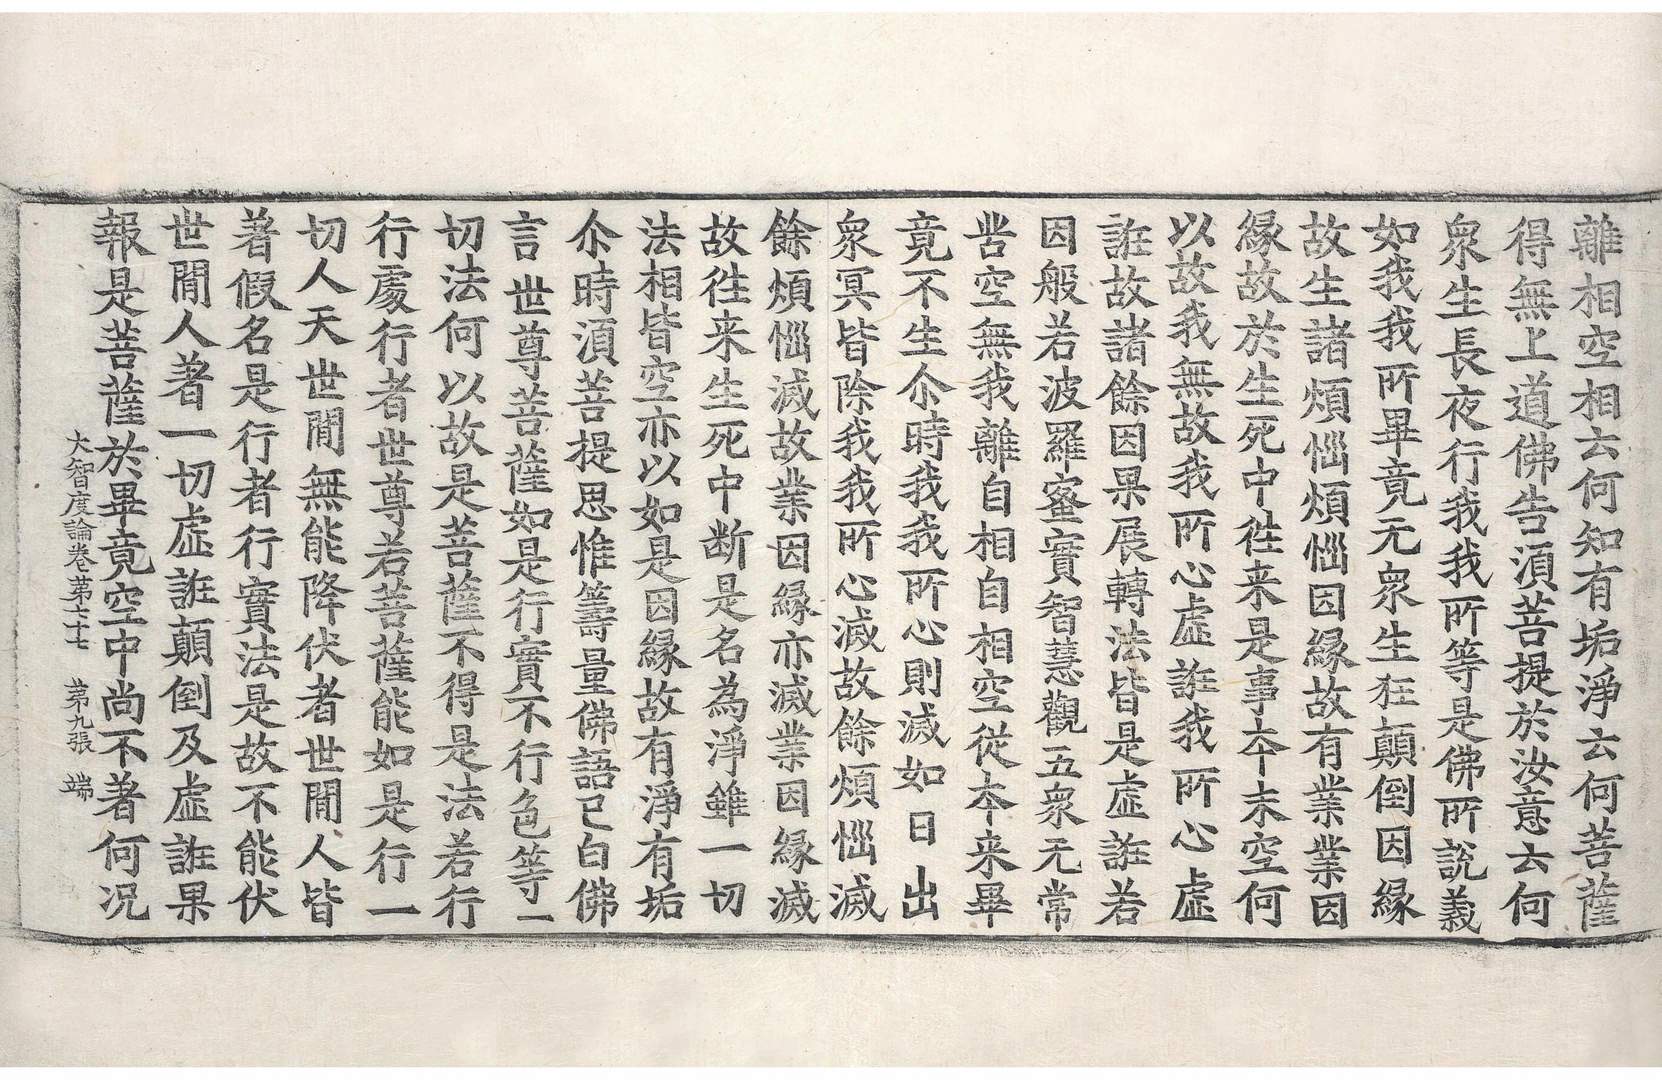 離相空相云何知有垢淨云何菩薩
得無上道佛告湏菩提於汝意云何
衆生長夜行我我所等是佛所說義
如我我所畢竟无衆生狂顛倒因緣
故生諸煩惱煩惱因緣故有業業因
緣故於生死中徃来是事夲末空何
以故我無故我我所心虛誑我所心虛
誑故諸餘因果展轉法皆是虛誑若
因般若波羅蜜實智慧觀五衆无常
苦空無我離自相自相空從夲来畢
竟不生尒時我我所心則滅如日出
衆冥皆除我我所心滅故餘煩惱滅
餘煩惱滅故業因緣亦滅業因緣滅
故徃来生死中斷是名為淨雖一切
法相皆空亦以如是因緣故有淨有垢
尒時湏菩提思惟籌量佛語已白佛
言世尊菩薩如是行實不行色等一
切法何以故是菩薩不得是法若行
行處行者世尊若菩薩能如是行一
切人天世間無能降伏者世間人皆
著假名是行者行實法是故不能伏
世間人著一切虛誑顛倒及虛誑果
報是菩薩於畢竟空中尚不著何况
大智度論卷第七十七 第九張 端